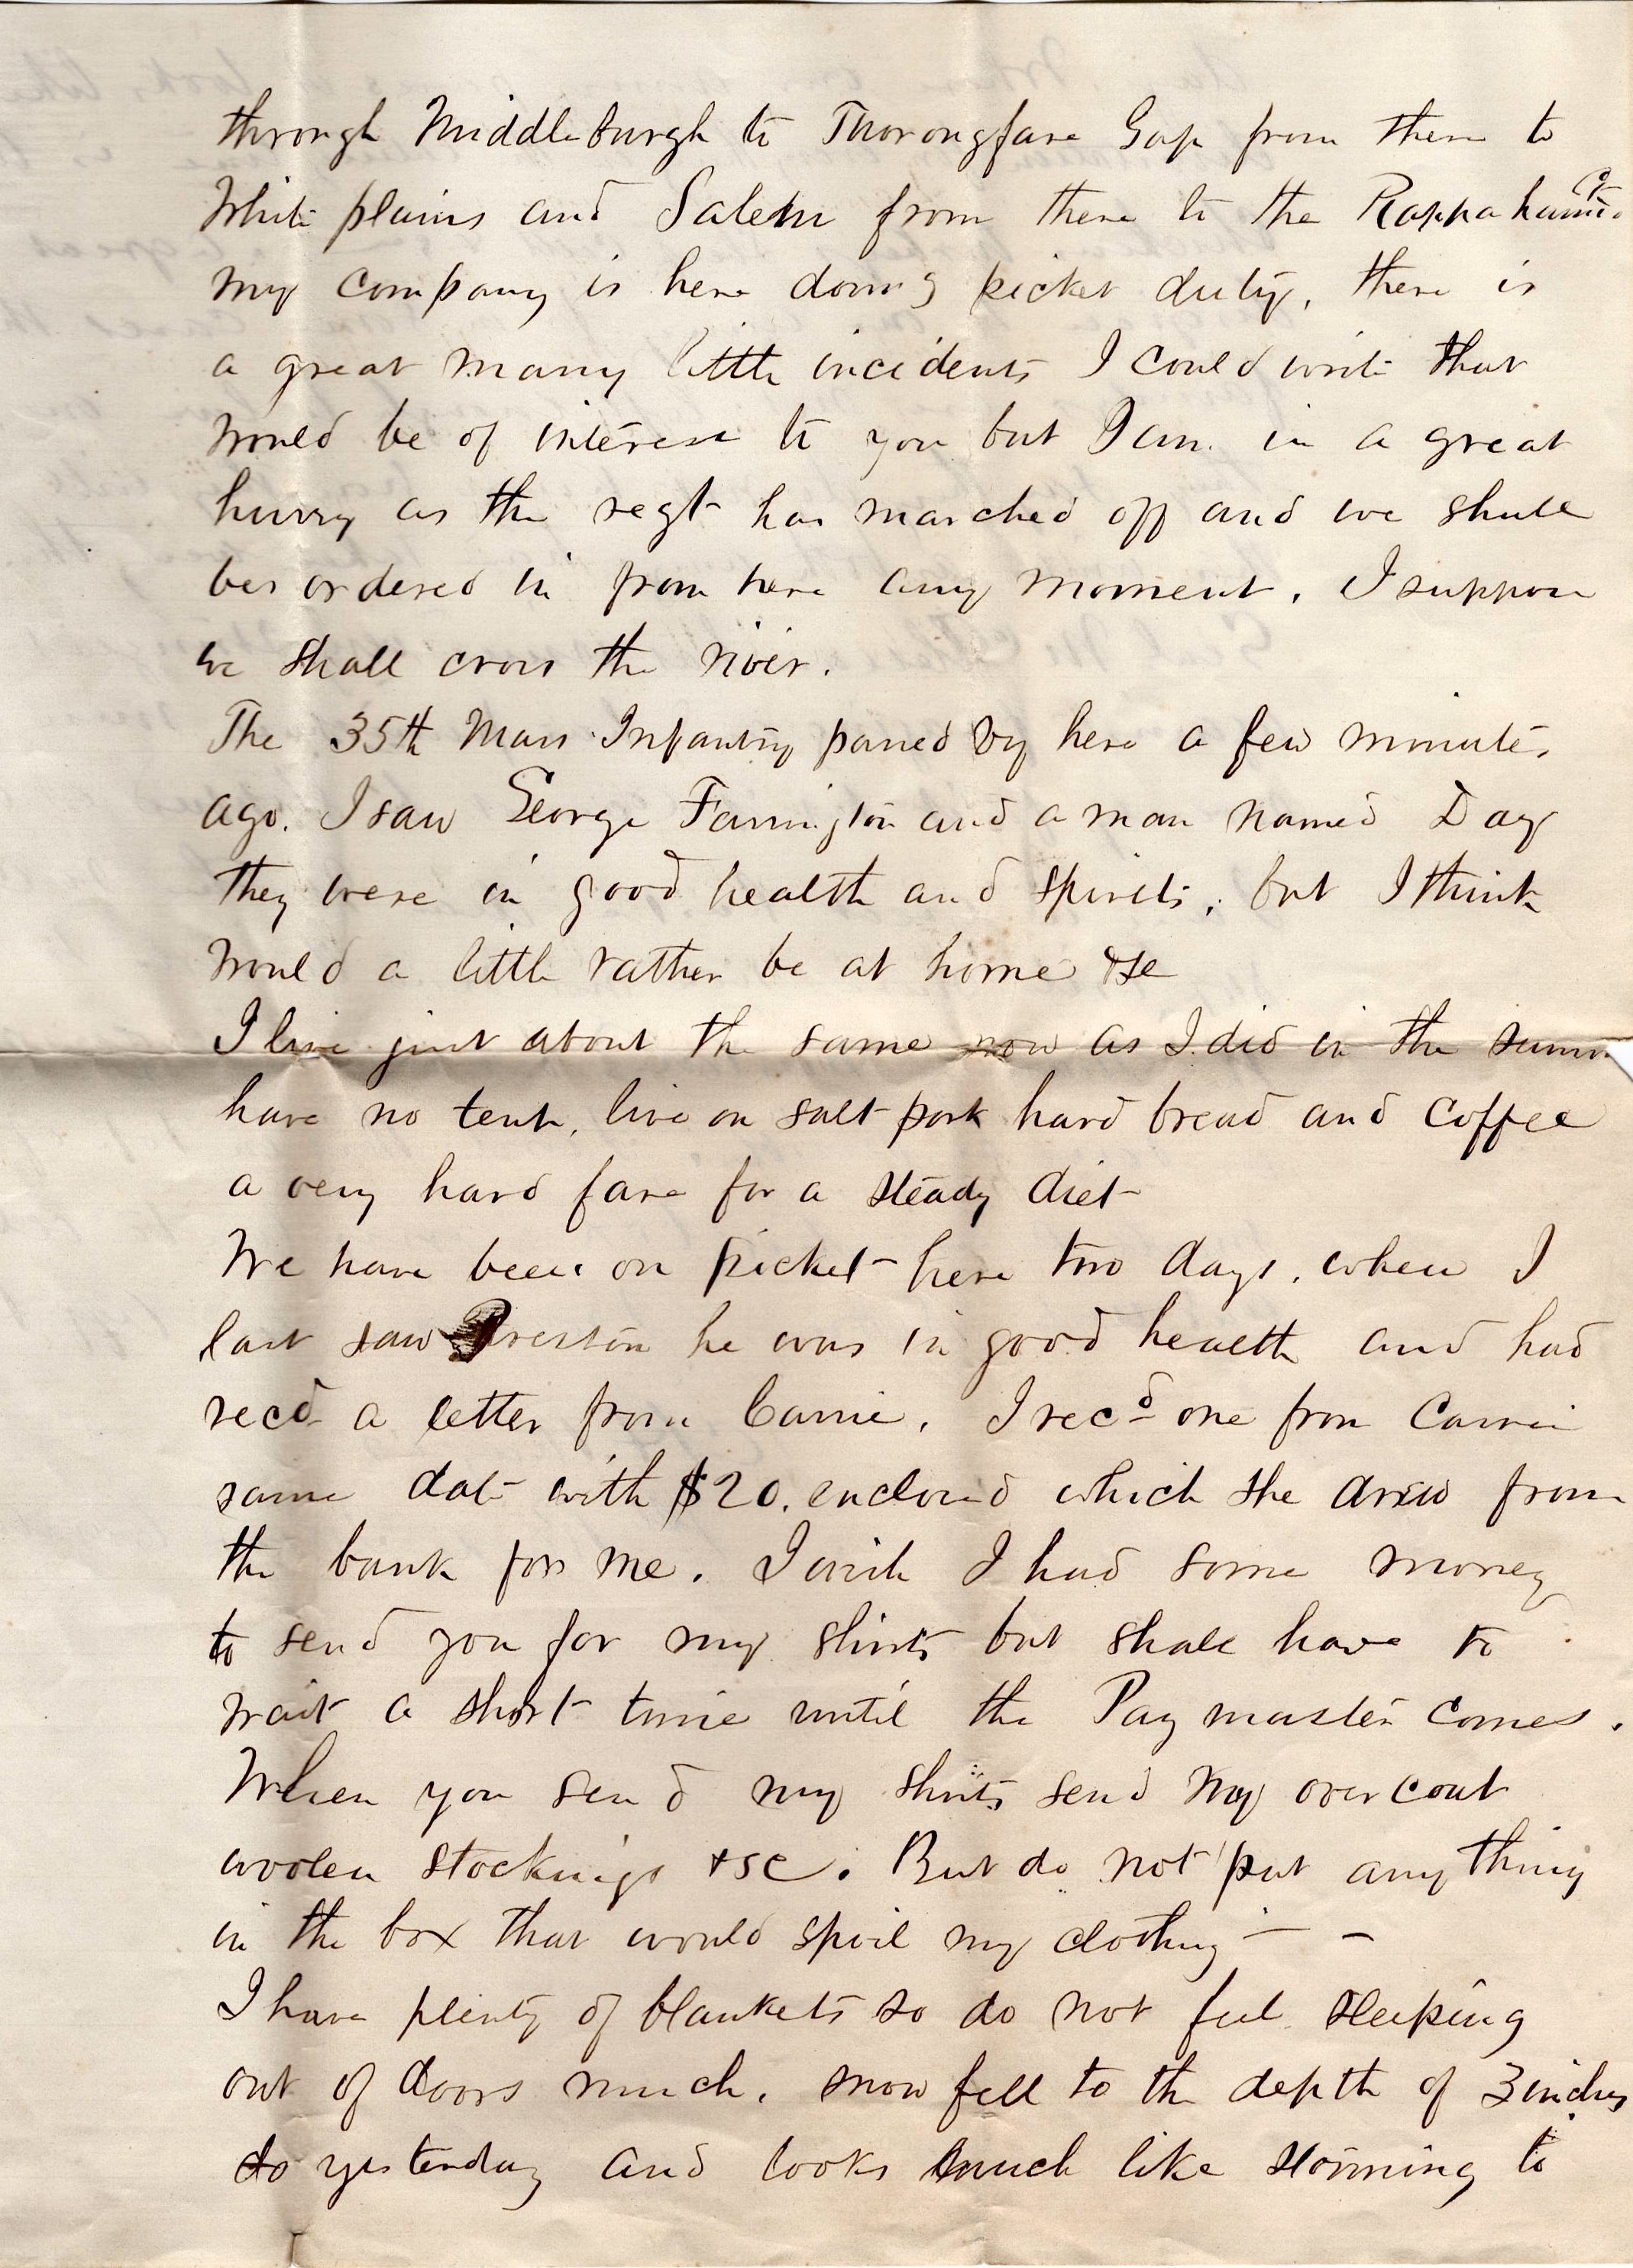 through Middleburgh to Thorougfare Gap from there to
White plains and Salem from there to the Rappahannoc
my company is here doing picket duty, there is
a great many little incidents I could write that
would be of interest to you but I am in a great
hurry as the regt has marched off and we shall
be ordered in from here any moment. I suppose
we shall cross the river.
The 35th Mass Infantry passed by here a few minutes
ago. I saw George Farrington and a man named Day
they were in good health and spirits, but I think
would a little rather be at home &c
I live just about the same now as I did in the summ
have no tent, live on salt pork hard bread and coffee
a very hard fare for a steady diet
We have been on picket here two days. when I
last saw Preston he was in good health and had
recd a letter from Carrie. I recd one from Carrie
same date with $20. enclosed which she drew from
the bank for me. I wish I had some money
to send you for my shirts but shall have to
wait a short time until the Paymaster comes.
When you send my shirts send my overcoat
woolen stockings &c. But do not put any thing
in the box that would spoil my clothing — —
I have plenty of blankets so do not feel sleeping
out of doors much. snow fell to the depth of 3 inches
yesterday and looks much like storming to